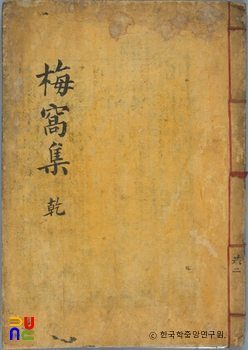 梅窩集 乾
共二
ⓒ 한국학중앙연구원